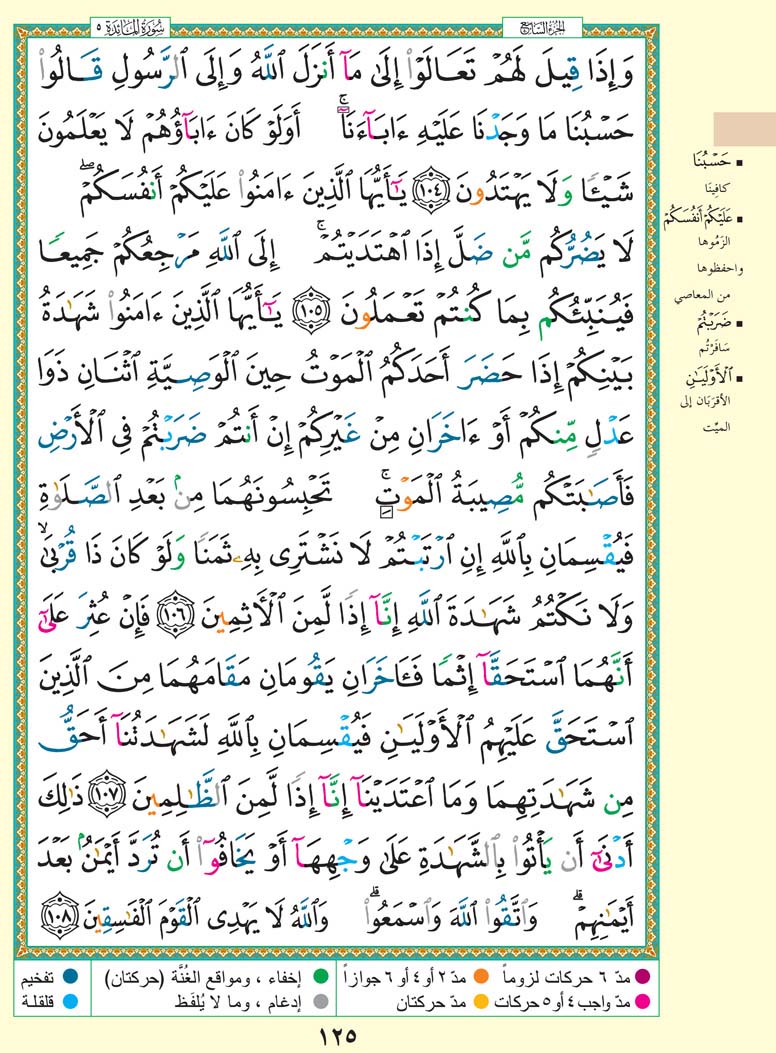 سُورَةُ المَائدَة ٥
الجُزءُ السَّابِع
وَإِذَا قِيلَ لَهُمْ تَعَالَوْا۟ إِلَىٰ مَآ أَنزَلَ ٱللَّهُ وَإِلَى ٱلرَّسُولِ قَالُوا۟
حَسْبُنَا مَا وَجَدْنَا عَلَيْهِ ءَابَآءَنَآ ۚ أَوَلَوْ كَانَ ءَابَآؤُهُمْ لَا يَعْلَمُونَ
شَيْـًٔا وَلَا يَهْتَدُونَ ١٠٤ يَـٰٓأَيُّهَا ٱلَّذِينَ ءَامَنُوا۟ عَلَيْكُمْ أَنفُسَكُمْ ۖ
لَا يَضُرُّكُم مَّن ضَلَّ إِذَا ٱهْتَدَيْتُمْ ۚ إِلَى ٱللَّهِ مَرْجِعُكُمْ جَمِيعًا
فَيُنَبِّئُكُم بِمَا كُنتُمْ تَعْمَلُونَ ١٠٥ يَـٰٓأَيُّهَا ٱلَّذِينَ ءَامَنُوا۟ شَهَـٰدَةُ
بَيْنِكُمْ إِذَا حَضَرَ أَحَدَكُمُ ٱلْمَوْتُ حِينَ ٱلْوَصِيَّةِ ٱثْنَانِ ذَوَا
عَدْلٍ مِّنكُمْ أَوْ ءَاخَرَانِ مِنْ غَيْرِكُمْ إِنْ أَنتُمْ ضَرَبْتُمْ فِى ٱلْأَرْضِ
فَأَصَـٰبَتْكُم مُّصِيبَةُ ٱلْمَوْتِ ۚ تَحْبِسُونَهُمَا مِنۢ بَعْدِ ٱلصَّلَوٰةِ
فَيُقْسِمَانِ بِٱللَّهِ إِنِ ٱرْتَبْتُمْ لَا نَشْتَرِى بِهِۦ ثَمَنًا وَلَوْ كَانَ ذَا قُرْبَىٰ ۙ
وَلَا نَكْتُمُ شَهَـٰدَةَ ٱللَّهِ إِنَّآ إِذًا لَّمِنَ ٱلْـَٔاثِمِينَ ١٠٦ فَإِنْ عُثِرَ عَلَىٰٓ
أَنَّهُمَا ٱسْتَحَقَّآ إِثْمًا فَـَٔاخَرَانِ يَقُومَانِ مَقَامَهُمَا مِنَ ٱلَّذِينَ
ٱسْتَحَقَّ عَلَيْهِمُ ٱلْأَوْلَيَـٰنِ فَيُقْسِمَانِ بِٱللَّهِ لَشَهَـٰدَتُنَآ أَحَقُّ
مِن شَهَـٰدَتِهِمَا وَمَا ٱعْتَدَيْنَآ إِنَّآ إِذًا لَّمِنَ ٱلظَّـٰلِمِينَ ١٠٧ ذَٰلِكَ
أَدْنَىٰٓ أَن يَأْتُوا۟ بِٱلشَّهَـٰدَةِ عَلَىٰ وَجْهِهَآ أَوْ يَخَافُوٓا۟ أَن تُرَدَّ أَيْمَـٰنٌۢ بَعْدَ
أَيْمَـٰنِهِمْ ۗ وَٱتَّقُوا۟ ٱللَّهَ وَٱسْمَعُوا۟ ۗ وَٱللَّهُ لَا يَهْدِى ٱلْقَوْمَ ٱلْفَـٰسِقِينَ ١٠٨
حَسْبُنَا
كافِينَا
عَلَيْكُمْ أَنفُسَكُمْ
الزَمُوها
واحفظوها
من المعاصي
ضَرَبْتُمْ
سَافَرْتُم
ٱلْأَوْلَيَـٰنِ
الأقرَبَان إلى
الميِّت
مدّ ٦ حركات لزوماً
مدّ ٢ أو ٤ أو ٦ جوازاً
إخفاء ، ومواقع الغُنَّة (حركتان)
تفخيم
مدّ واجب ٤ أو ٥ حركات
مدّ حركتان
إدغام ، وما لا يُلفَظ
قلقلة
١٢٥